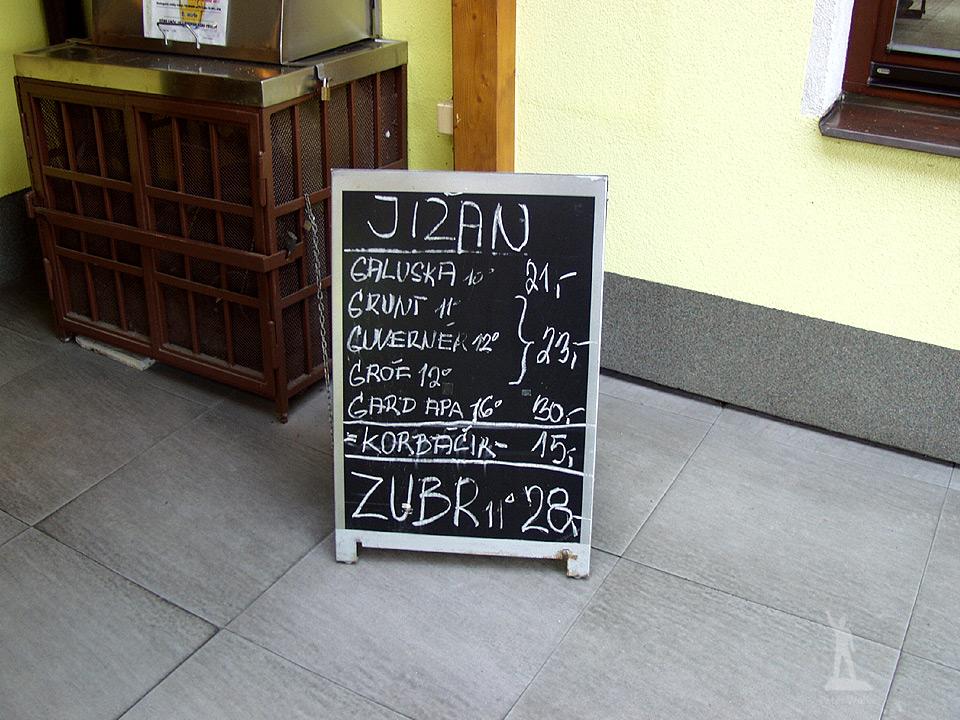 JIZAN
GALUSKA 10° 21,-
GRUNT 11°
GUVERNÉR 12° 23,-
GRÓF 12°
GARD APA 16° 30,-
=KORBÁČIK- 15,-
ZUBR 11° 28,-